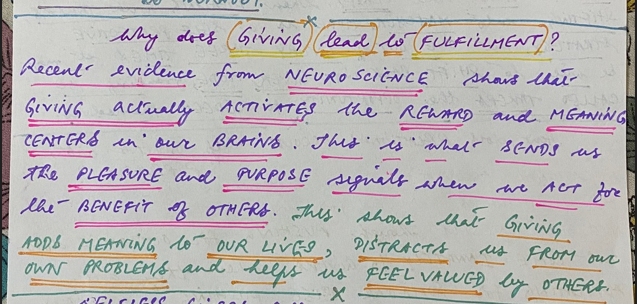 Why does GIVING lead to FULFILLMENT?
Recent evidence from NEUROSCIENCE shows that
GIVING actually ACTIVATES the REWARD and MEANING
CENTERS in our BRAINS. This is what SENDS us
the PLEASURE and PURPOSE signals when we ACT for
the BENEFIT of OTHERS. This shows that GIVING
ADDS MEANING to OUR LIVES, DISTRACTS us FROM our
OWN PROBLEMS and helps us FEEL VALUED by OTHERS.